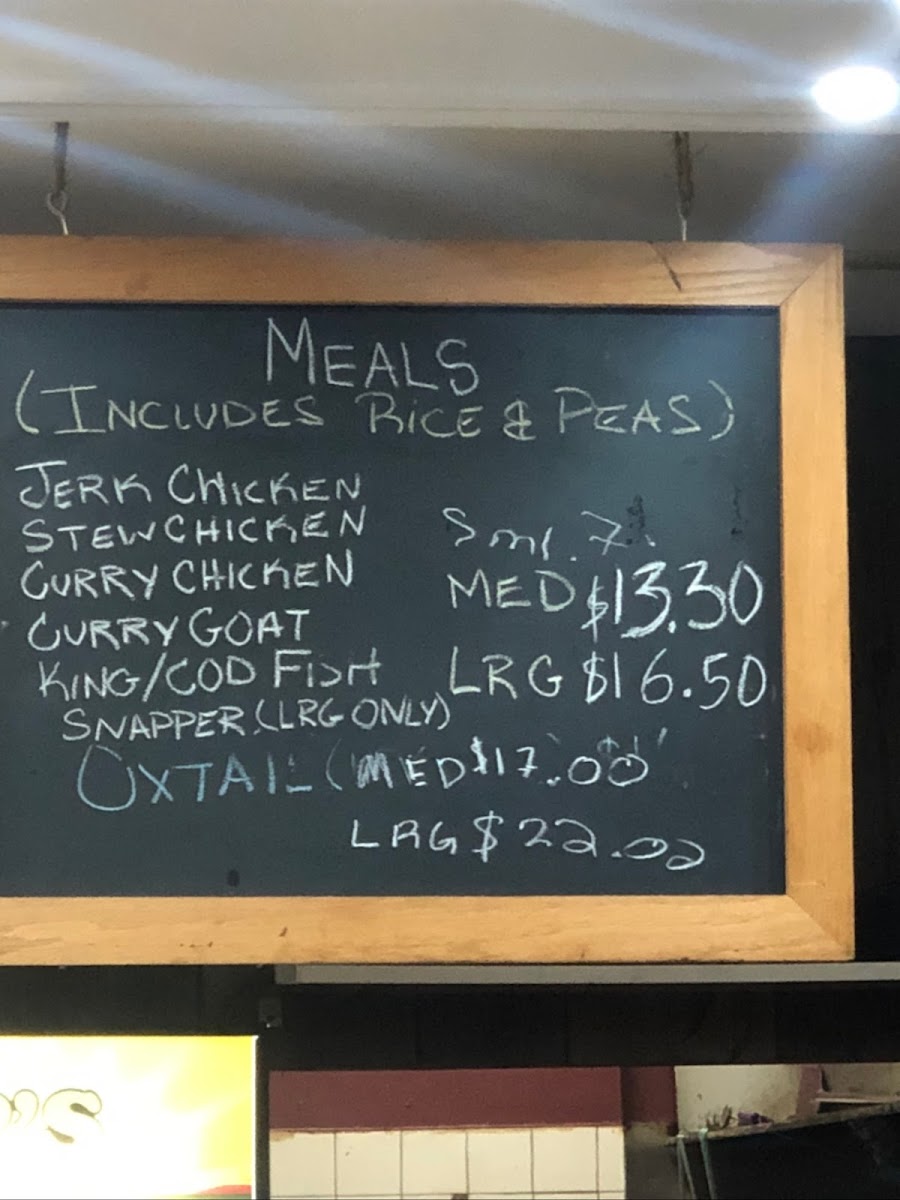 MEALS
(INCLUDES RICE & PEAS)
JERK CHICKEN
STEW CHICKEN
Sml. 7.
CURRY CHICKEN
MED $13.30
CURRY GOAT
KING/COD FISH
LRG $16.50
SNAPPER (LRG ONLY)
OXTAIL (MED $17.00
LRG $22.00
's